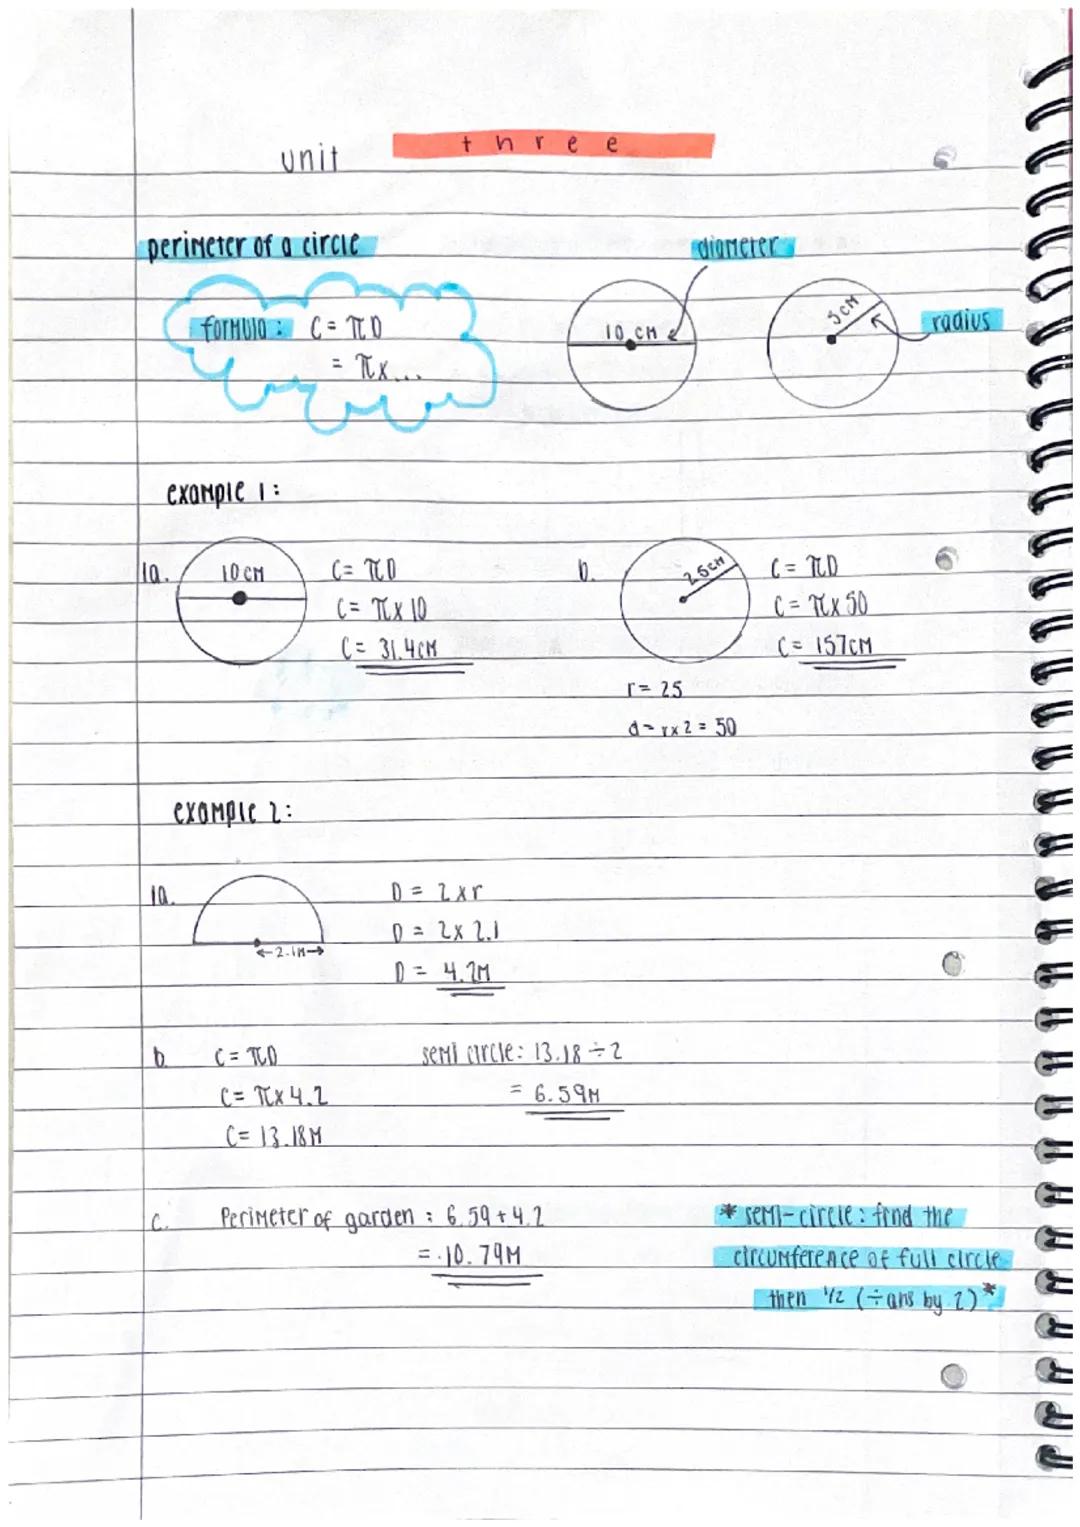 unit three
perimeter of a circle
diameter
formula: C = πD
= πx...
10 cm
5cm
radius
example 1:
1a.
10cm
C= πD
C= πx10
C= 31.4cm
b.
25cm
C= πD
C= πx50
C= 157cm
r= 25
d=rx2=50
example 2:
1a.
←2.1M→
D= 2xr
D= 2x2.1
D= 4.2M
b.
C= πD
C= πx4.2
C= 13.18M
semi circle: 13.18÷2
= 6.59M
c.
Perimeter of garden: 6.59+4.2
= 10.79M
* semi-circle: find the
circumference of full circle
then 1/2 (÷ans by 2)*